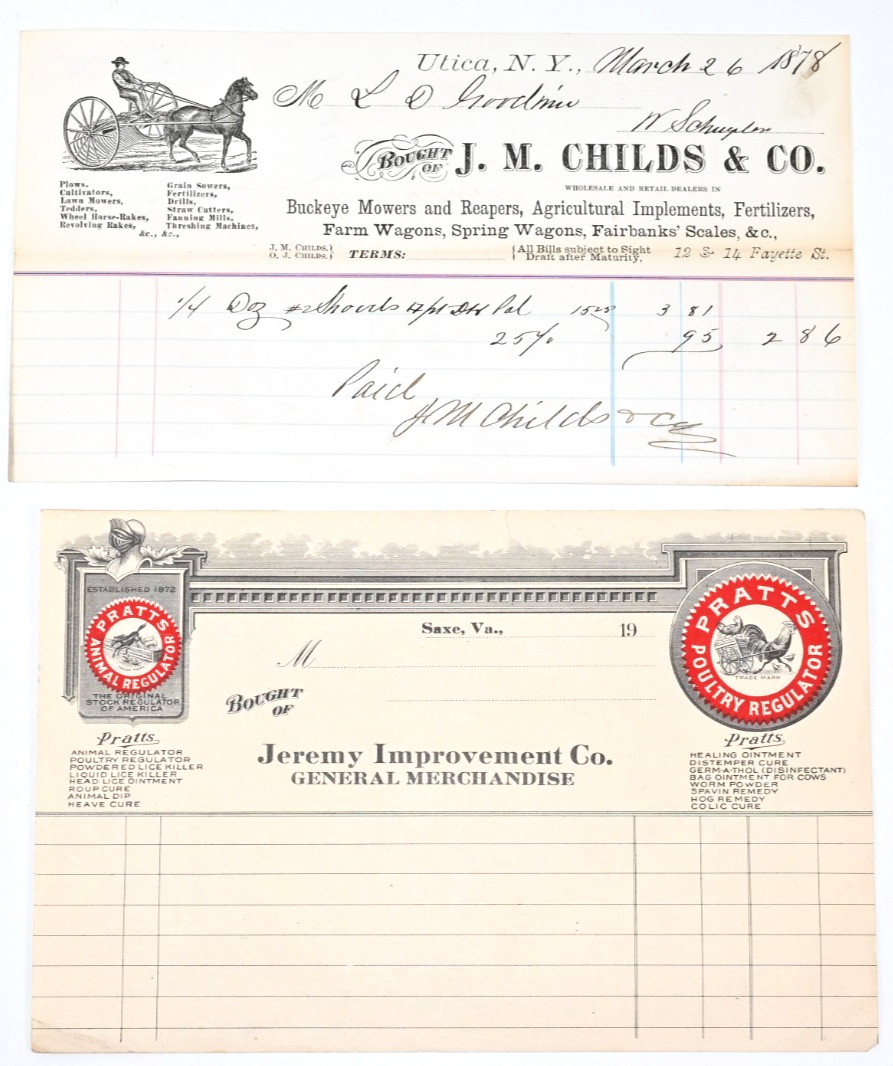 Utica, N. Y., March 26 1878
M L D Goodin
W Schuyler
BOUGHT OF J. M. CHILDS & CO.
WHOLESALE AND RETAIL DEALERS IN
Buckeye Mowers and Reapers, Agricultural Implements, Fertilizers,
Farm Wagons, Spring Wagons, Fairbanks' Scales, &c.,
Plows,
Cultivators,
Lawn Mowers,
Tedders,
Wheel Horse-Rakes,
Revolving Rakes,
Grain Sowers,
Fertilizers,
Drills,
Straw Cutters,
Fanning Mills,
Threshing Machines,
&c., &c.,
J. M. CHILDS.
O. J. CHILDS.
TERMS:
All Bills subject to Sight
Draft after Maturity.
12 & 14 Fayette St.
1/4 Doz #2 Shovels Pal 15 25 3 81
25% 95 2 86
Paid
J M Childs & Co
ESTABLISHED 1872
PRATTS
ANIMAL REGULATOR
THE ORIGINAL
STOCK REGULATOR
OF AMERICA
Pratts
ANIMAL REGULATOR
POULTRY REGULATOR
POWDERED LICE KILLER
LIQUID LICE KILLER
HEAD LICE OINTMENT
ROUP CURE
ANIMAL DIP
HEAVE CURE
Saxe, Va., 19
M
BOUGHT OF
Jeremy Improvement Co.
GENERAL MERCHANDISE
PRATTS
POULTRY REGULATOR
TRADE MARK
Pratts
HEALING OINTMENT
DISTEMPER CURE
GERM-A-THOL (DISINFECTANT)
BAG OINTMENT FOR COWS
WORM POWDER
SPAVIN REMEDY
HOG REMEDY
COLIC CURE